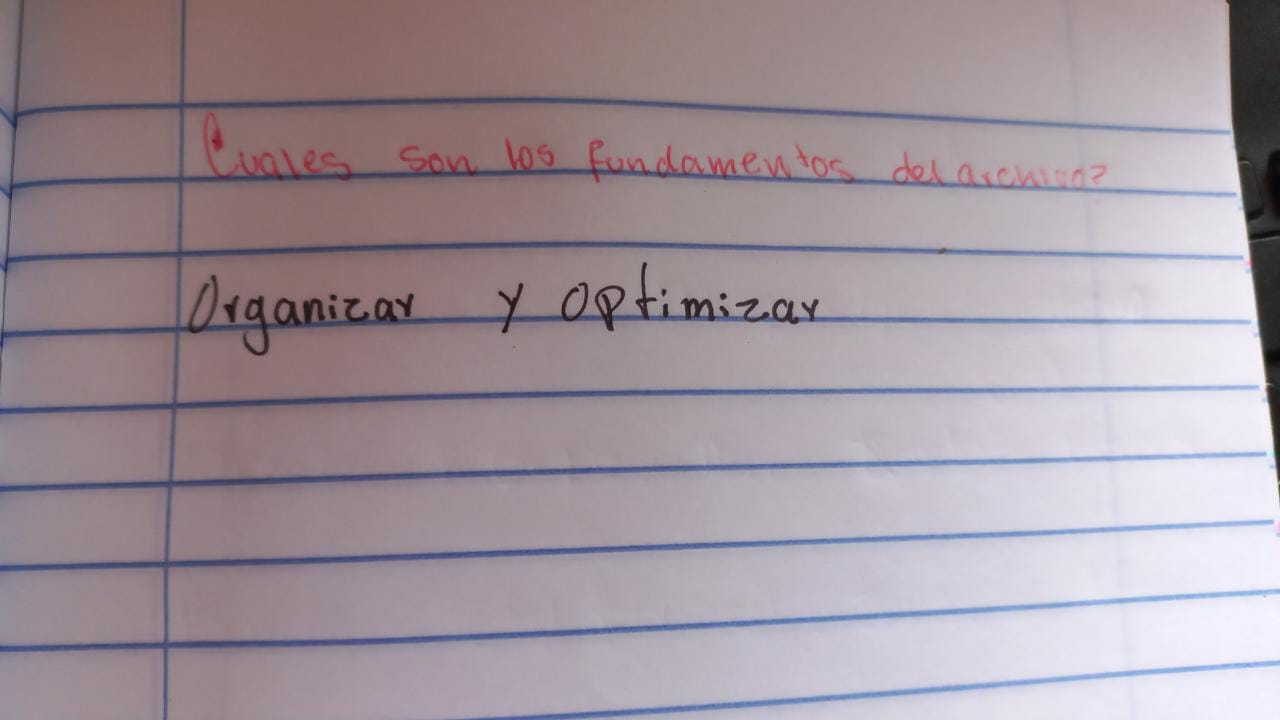 Cuales son los fundamentos del archivo?
Organizar y Optimizar